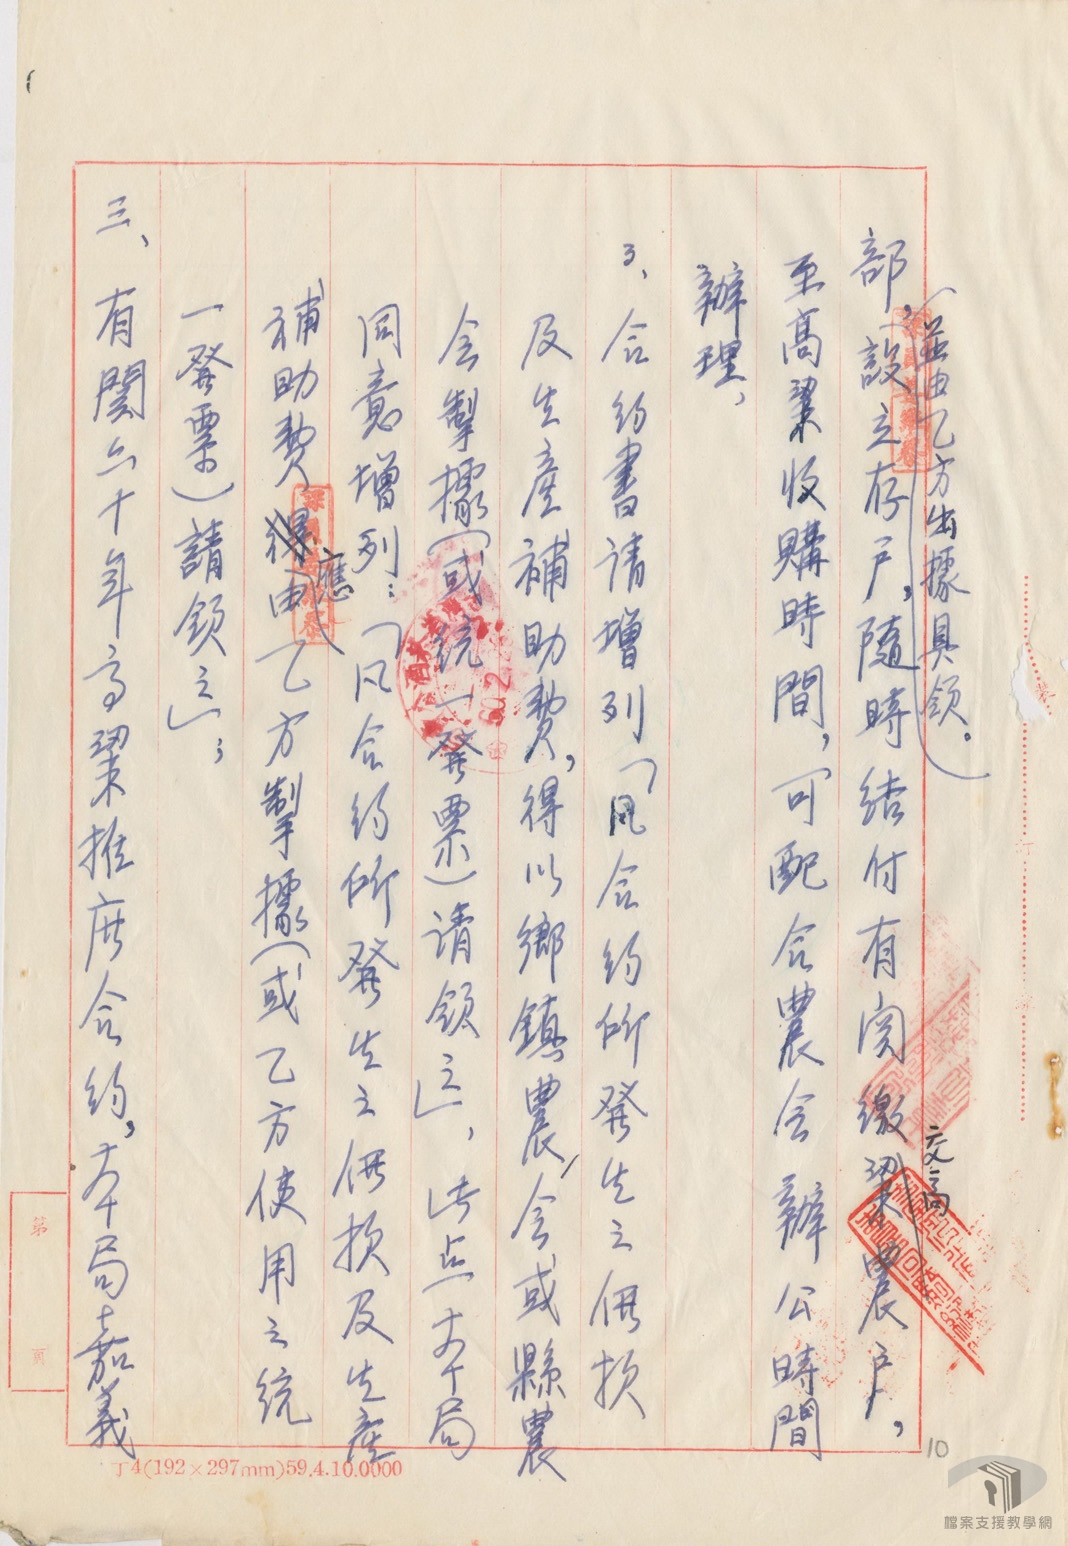 部設立存戶，隨時結付有関繳交高粱農戶，
（並由乙方出據具領。）
至高粱收購時間，可配合農会辦公時間
辦理，
3、合約書请增列「凡合約所發生之佣损
及生產補助費，得以鄉鎮農会或縣農
会掣據（或統一發票）请領之」，此点本局
同意增列：「凡合約所發生之佣损及生產
補助費應由乙方掣據（或乙方使用之統
一發票）請領之」；
三、有関六十年高粱推広合約，本局嘉義
丁4(192×297mm)59.4.10.0000
第
頁
訂
10
檔案支援教學網